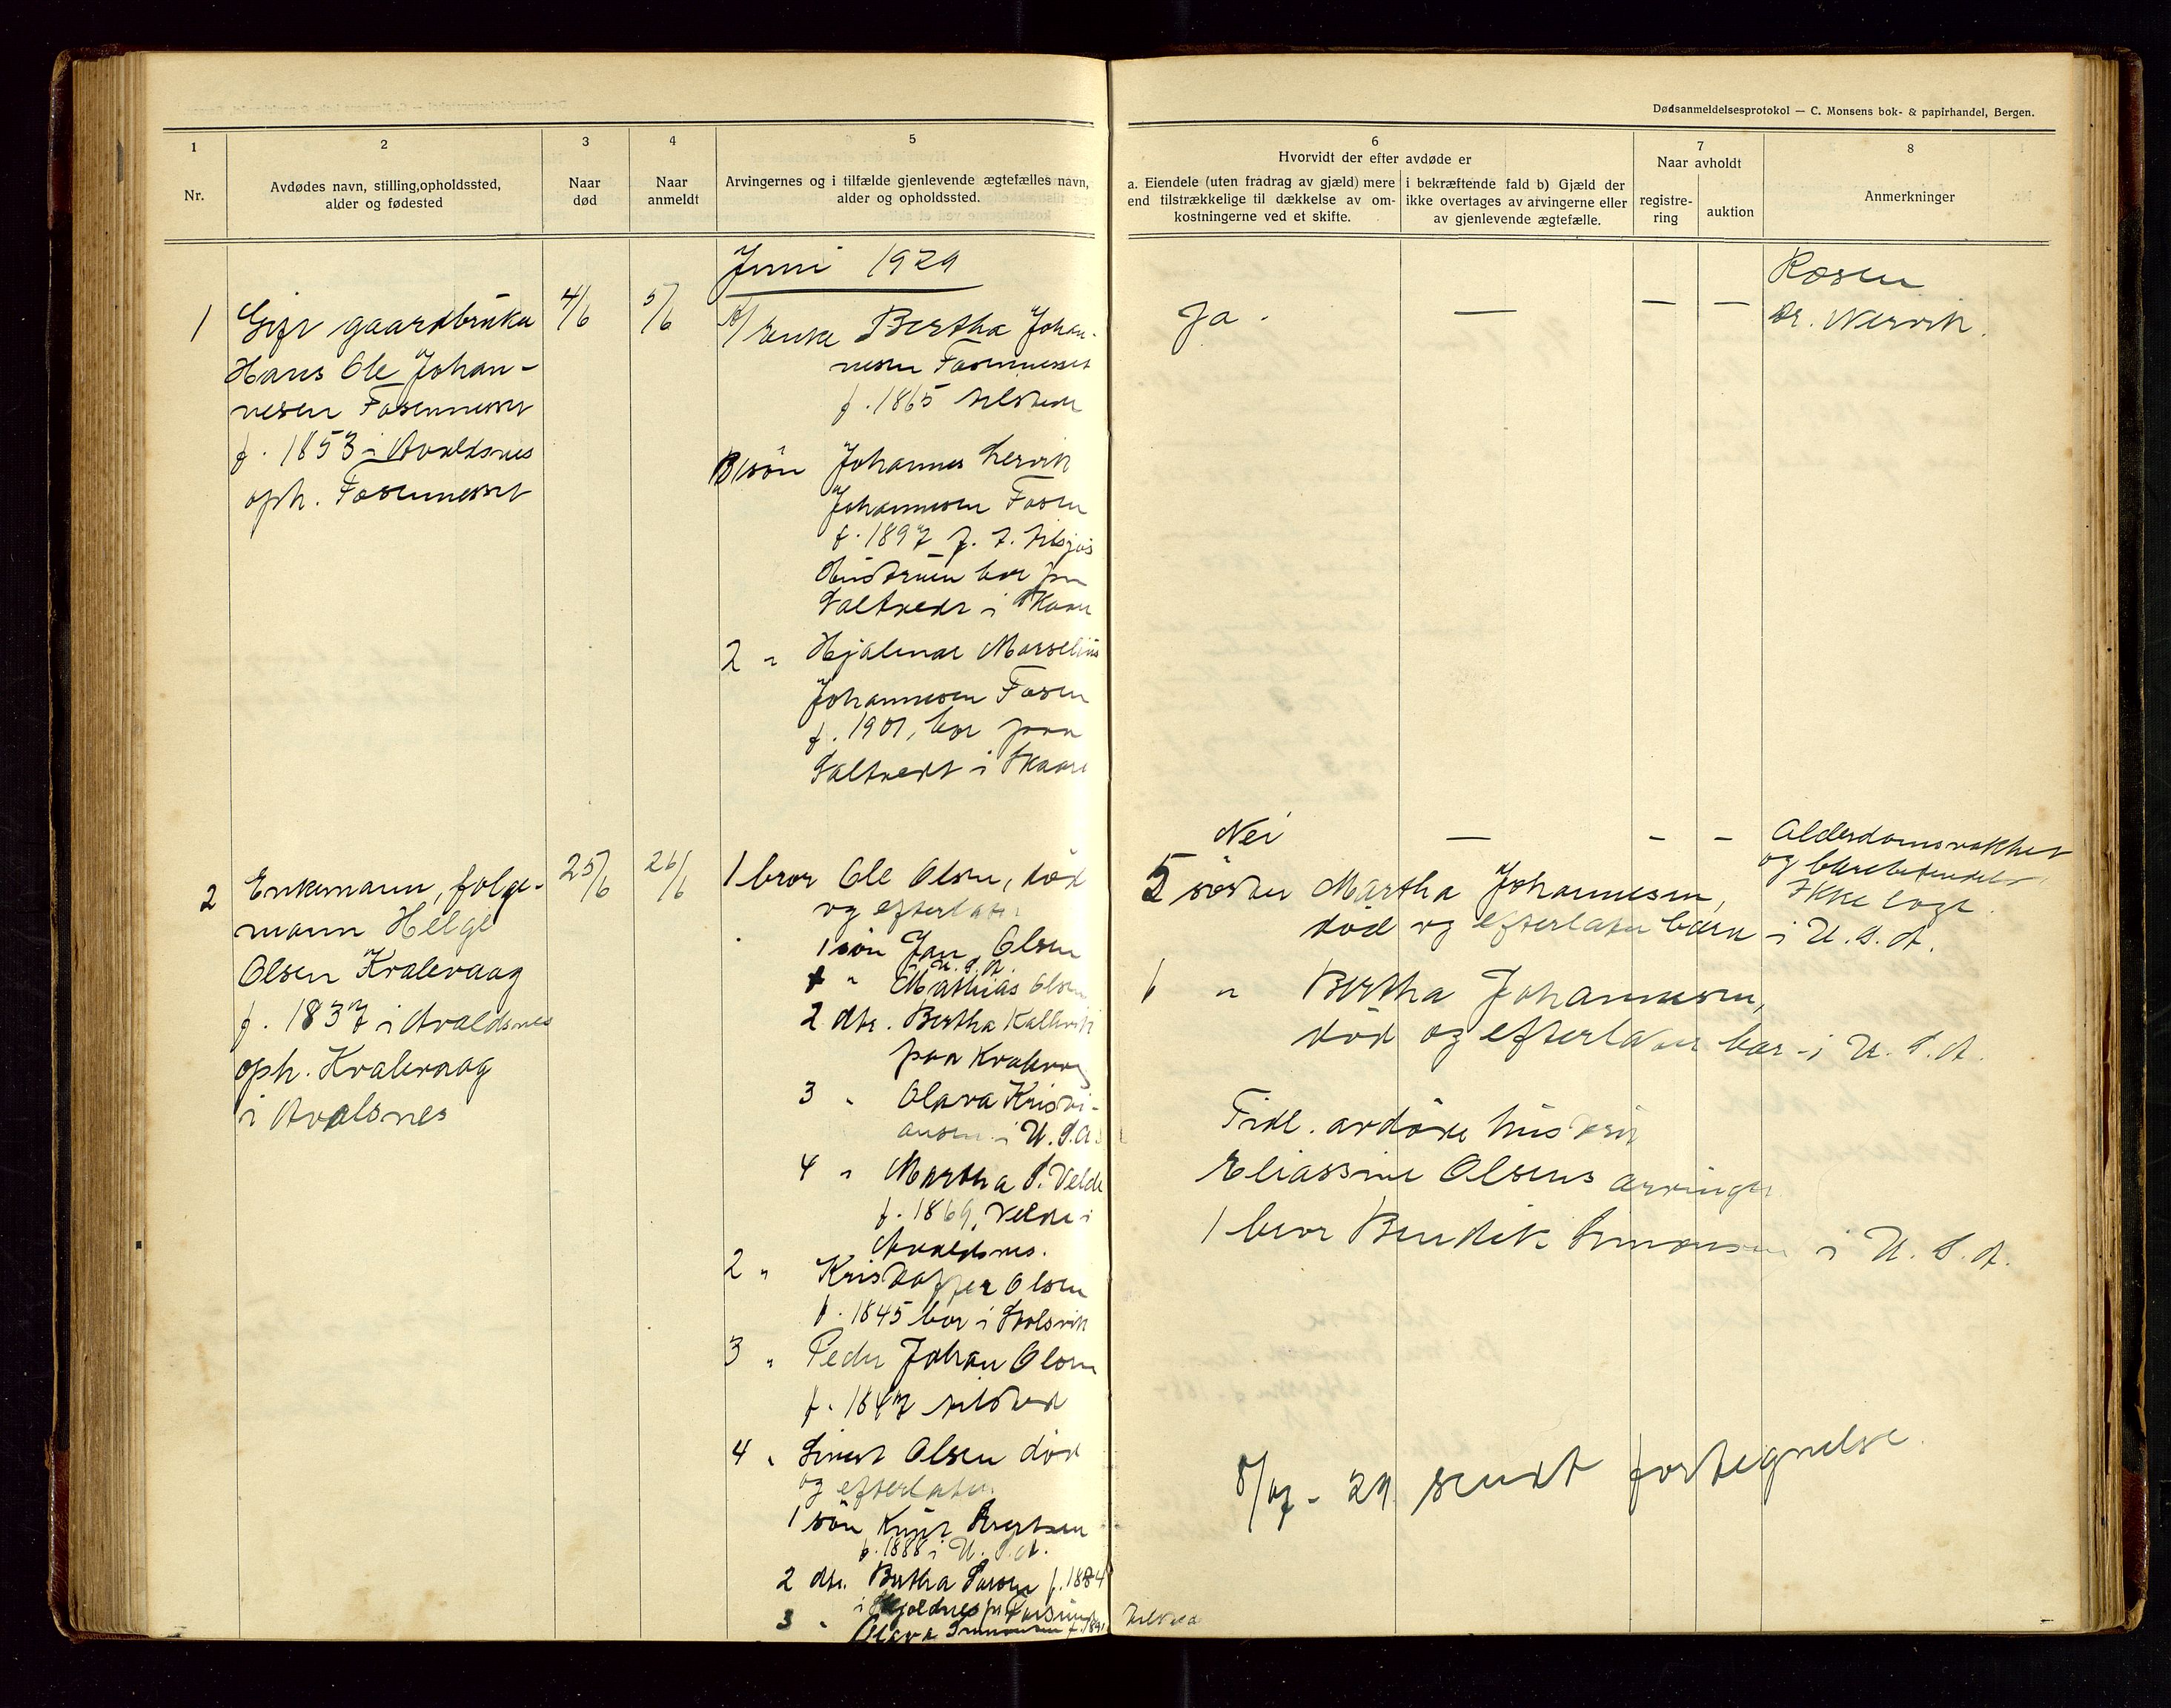 Dødsanmeldelsesprotokol — C. Monsens bok- & papirhandel, Bergen.
1
Nr.
2
Avdødes navn, stilling, opholdssted,
alder og fødested
3
Naar
død
4
Naar
anmeldt
5
Arvingernes og i tilfælde gjenlevende ægtefælles navn,
alder og opholdssted.
6
Hvorvidt der efter avdøde er
a. Eiendele (uten fradrag av gjæld) mere
end tilstrækkelige til dækkelse av om-
kostningerne ved et skifte.
i bekræftende fald b) Gjæld der
ikke overtages av arvingerne eller
av gjenlevende ægtefælle.
7
Naar avholdt
registre-
ring
auktion
8
Anmerkninger
Juni 1929
1
Gift gaardbruker
Hans Ole Johan-
nesen Fosenneset
f. 1853 i Avaldsnes
oph. Fosenneset
4/6
5/6
A/ Enke Bertha Johan-
nesen Fosenneset
f. 1865 tilstede
B 1 søn Johannes
Johannesen Fosen
f. 1897 f. t. tilsjøs
Hustruen bor paa
Saltvedt i Skaare
2 " Hjalmar Marselius
Johannesen Fosen
f. 1901, bor paa
Saltvedt i Skaare
Ja.
—
—
—
Rosen
Dr. Nervik.
2
Enkemann, følge-
mann Helge
Olsen Kvalevaag
f. 1837 i Avaldsnes
oph. Kvalevaag
i Avalsnes
25/6
26/6
1 bror Ole Olsen, død
og efterlater
1 søn Jan Olsen
i U.S.A.
" Mathias Olsen
2 dtr. Bertha Kallevik
paa Kvalevag
3 " Olava Kristi-
ansen i U.S.A.
4 " Martha S. Velde
f. 1869, Velde i
Avaldsnes.
2 " Kristoffer Olsen
f. 1845 bor i Stolsvik
3 " Peder Johan Olsen
f. 1847 tilsted
4 " Sivert Olsen død
og efterlater
1 søn Knut Sivertsen
f. 1888 i U.S.A.
2 dtr. Bertha f. 1884
3 " Olava Simonsen f. 1891
tilsted
Nei
—
–
–
Alderdomsvakhet
og
Ikke læge.
5 søster Martha Johannesen,
død og efterlater bærn i U.S.A.
6 " Bertha Johannesen,
død og efterlater bar i U.S.A.
Tidl. avdøde hustru
Eliassine Olsens arvinger
1 bror Bendik Simonsen i U.S.A.
8/7 - 29 sendt fortegnelse